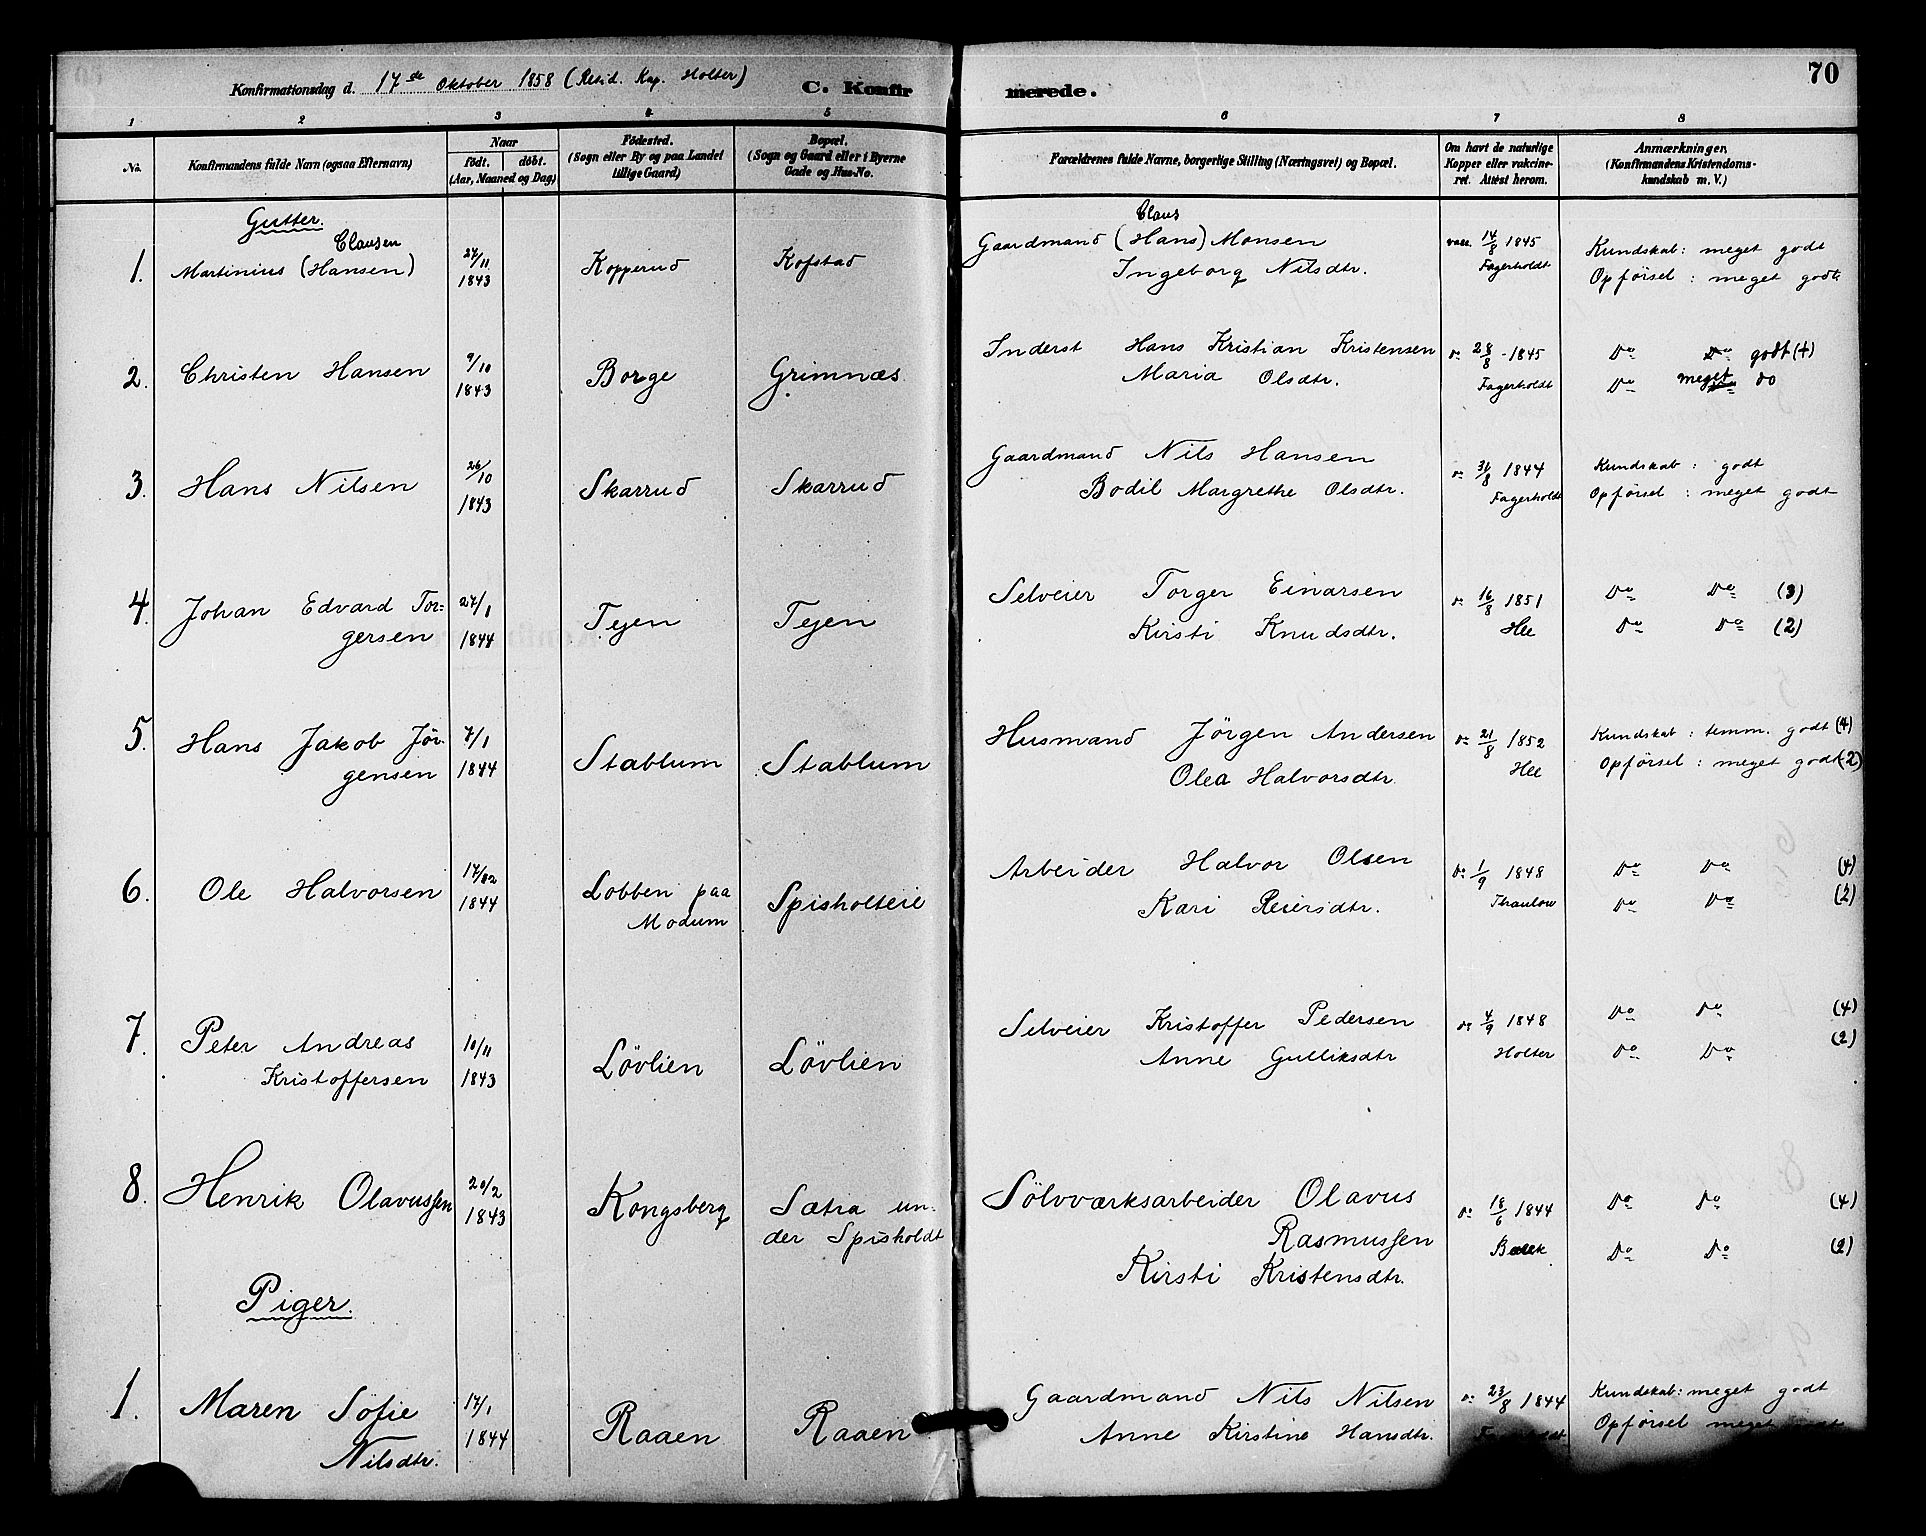 Konfirmationsdag d. 17de Oktober 1858 (Resid. Kap. Holter)
C. Konfirmerede.
70
1 2 3 4 5 6 7 8
No.
Konfirmandens fulde Navn (ogsaa Efternavn)
Naar
født. døbt.
(Aar, Maaned og Dag)
Fødested.
(Sogn eller By og paa Landet
tillige Gaard)
Bopæl.
(Sogn og Gaard eller i Byerne
Gade og Hus-No.
Forældrenes fulde Navne, borgerlige Stilling (Næringsvei) og Bopæl.
Om havt de naturlige
Kopper eller vakcine-
ret. Attest herom.
Anmærkninger,
(Konfirmandens Kristendoms-
kundskab m. V.)
Gutter.
1. Clausen
Martinius (Hansen)
27/11
1843
Kopperud
Kofstad
Claus
Gaardmand (Hans) Monsen
Ingeborg Nilsdtr.
vacc. 14/8 1845
Fagerholdt
Kundskab: meget godt
Opførsel: meget godt
2. Christen Hansen
9/10
1843
Borge
Grimnæs
Inderst Hans Kristian Kristensen
Maria Olsdtr.
do 28/8 - 1845
Fagerholdt
Do godt (+)
Do meget do
3. Hans Nilsen
26/10
1843
Skarrud
Skarrud
Gaardmand Nils Hansen
Bodil Margrethe Olsdtr.
do 31/8 1844
Fagerholdt
Kundskab: godt
Opførsel: meget godt
4. Johan Edvard Tor=
gersen
27/1
1844
Tejen
Tejen
Selveier Torger Einarsen
Kirsti Knudsdtr.
do 16/8 1851
Hee
Do Do (3)
Do Do (2)
5. Hans Jakob Jør-
gensen
7/1
1844
Stablum
Stablum
Husmand Jørgen Andersen
Olea Halvorsdtr.
do 21/8 1852
Hee
Kundskab: temm. godt (4)
Opførsel: meget godt (2)
6. Ole Halvorsen
17/02
1844
Lobben paa
Modum
Spisholteie
Arbeider Halvor Olsen
Kari Reiersdtr.
do 1/9 1848
Thaulow
Do Do (4)
Do Do (2)
7. Peter Andreas
Kristoffersen
10/11
1843
Løvlien
Løvlien
Selveier Kristoffer Pedersen
Anne Gulliksdtr
do 4/9 1848
Holter
Do Do (4)
Do Do (2)
8. Henrik Olavussen
20/2
1843
Kongsberg
Sætra un-
der Spisholdt
Sølvværksarbeider Olavus
Rasmussen
Kirsti Kristensdtr.
do 18/6 1844
Do Do (4)
Do Do (2)
Piger.
1. Maren Sofie
Nilsdtr.
17/1
1844
Raaen
Raaen
Gaardmand Nils Nilsen
Anne Kirstine Hansdtr.
do 23/8 1844
Kundskab: meget godt
Opførsel meget godt